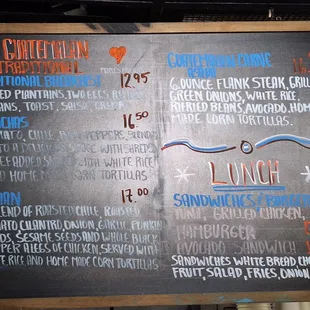 GUATEMALAN
TRADITIONAL
BREAKFAST 12.95
PLANTAINS, TWO EGGS
BEANS, TOAST, SALSA, CREMA
16.50
CHILE, PEPPERS,
DELICIOUS SAUCE WITH
WITH WHITE RICE
HOME MADE CORN TORTILLAS
17.00
BLEND OF ROASTED CHILE, ROASTED
TOMATO CILANTRO, ONION, GARLIC, PUMPKIN
SEEDS, SESAME SEEDS AND WHOLE BLACK
PEPPER & LEG OF CHICKEN, SERVED WITH
RICE AND HOME MADE CORN TORTILLAS
GUATEMALAN CARNE
ASADA
6 OUNCE FLANK STEAK, GRILL
GREEN ONIONS, WHITE RICE
REFRIED BEANS, AVOCADO, HOM
MADE CORN TORTILLAS.
LUNCH
SANDWICHES &
TUNA, GRILLED CHICKEN,
HAMBURGER
AVOCADO SANDWICH
SANDWICHES WHITE BREAD
FRUIT, SALAD, FRIES, ONION